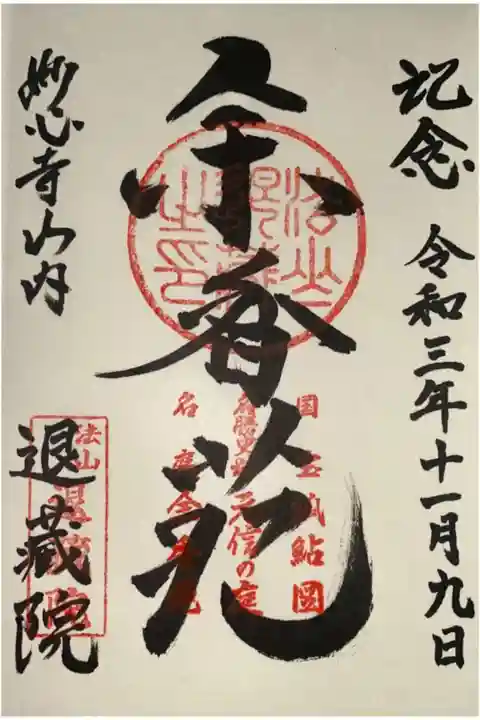 記念 令和三年十一月九日
余香苑
国宝瓢鮎図
名勝史跡元信の庭
名庭余香苑
妙心寺山内
退蔵院
法山
退蔵院